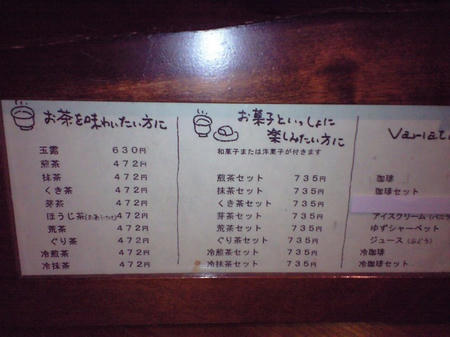 お茶を味わいたい方に
玉露 630円
煎茶 472円
抹茶 472円
くき茶 472円
芽茶 472円
ほうじ茶 472円
荒茶 472円
ぐり茶 472円
冷煎茶 472円
冷抹茶 472円
お菓子といっしょに
楽しみたい方に
和菓子または洋菓子が付きます
煎茶セット 735円
抹茶セット 735円
くき茶セット 735円
芽茶セット 735円
荒茶セット 735円
ぐり茶セット 735円
冷煎茶セット 735円
冷抹茶セット 735円
Variat
珈琲
珈琲セット
アイスクリーム
ゆずシャーベット
ジュース(ぶどう)
冷珈琲
冷珈琲セット